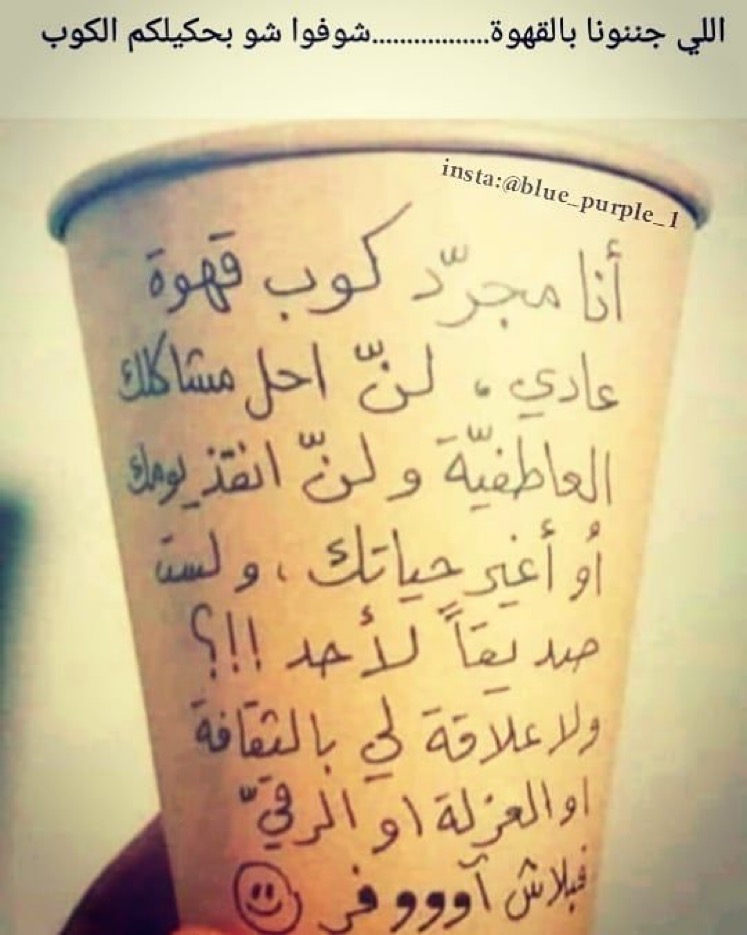 اللي جننونا بالقهوة.................شوفوا شو بحكيلكم الكوب
insta:@blue_purple_1
أنا مجرّد كوب قهوة
عادي، لنّ احل مشاكلك
العاطفيّة ولنّ انقذ يومك
أو أغير حياتك، ولست
صديقاً لأحد !!؟
ولا علاقة لي بالثقافة
او العزلة او الرقيّ
فبلاش آوووفر